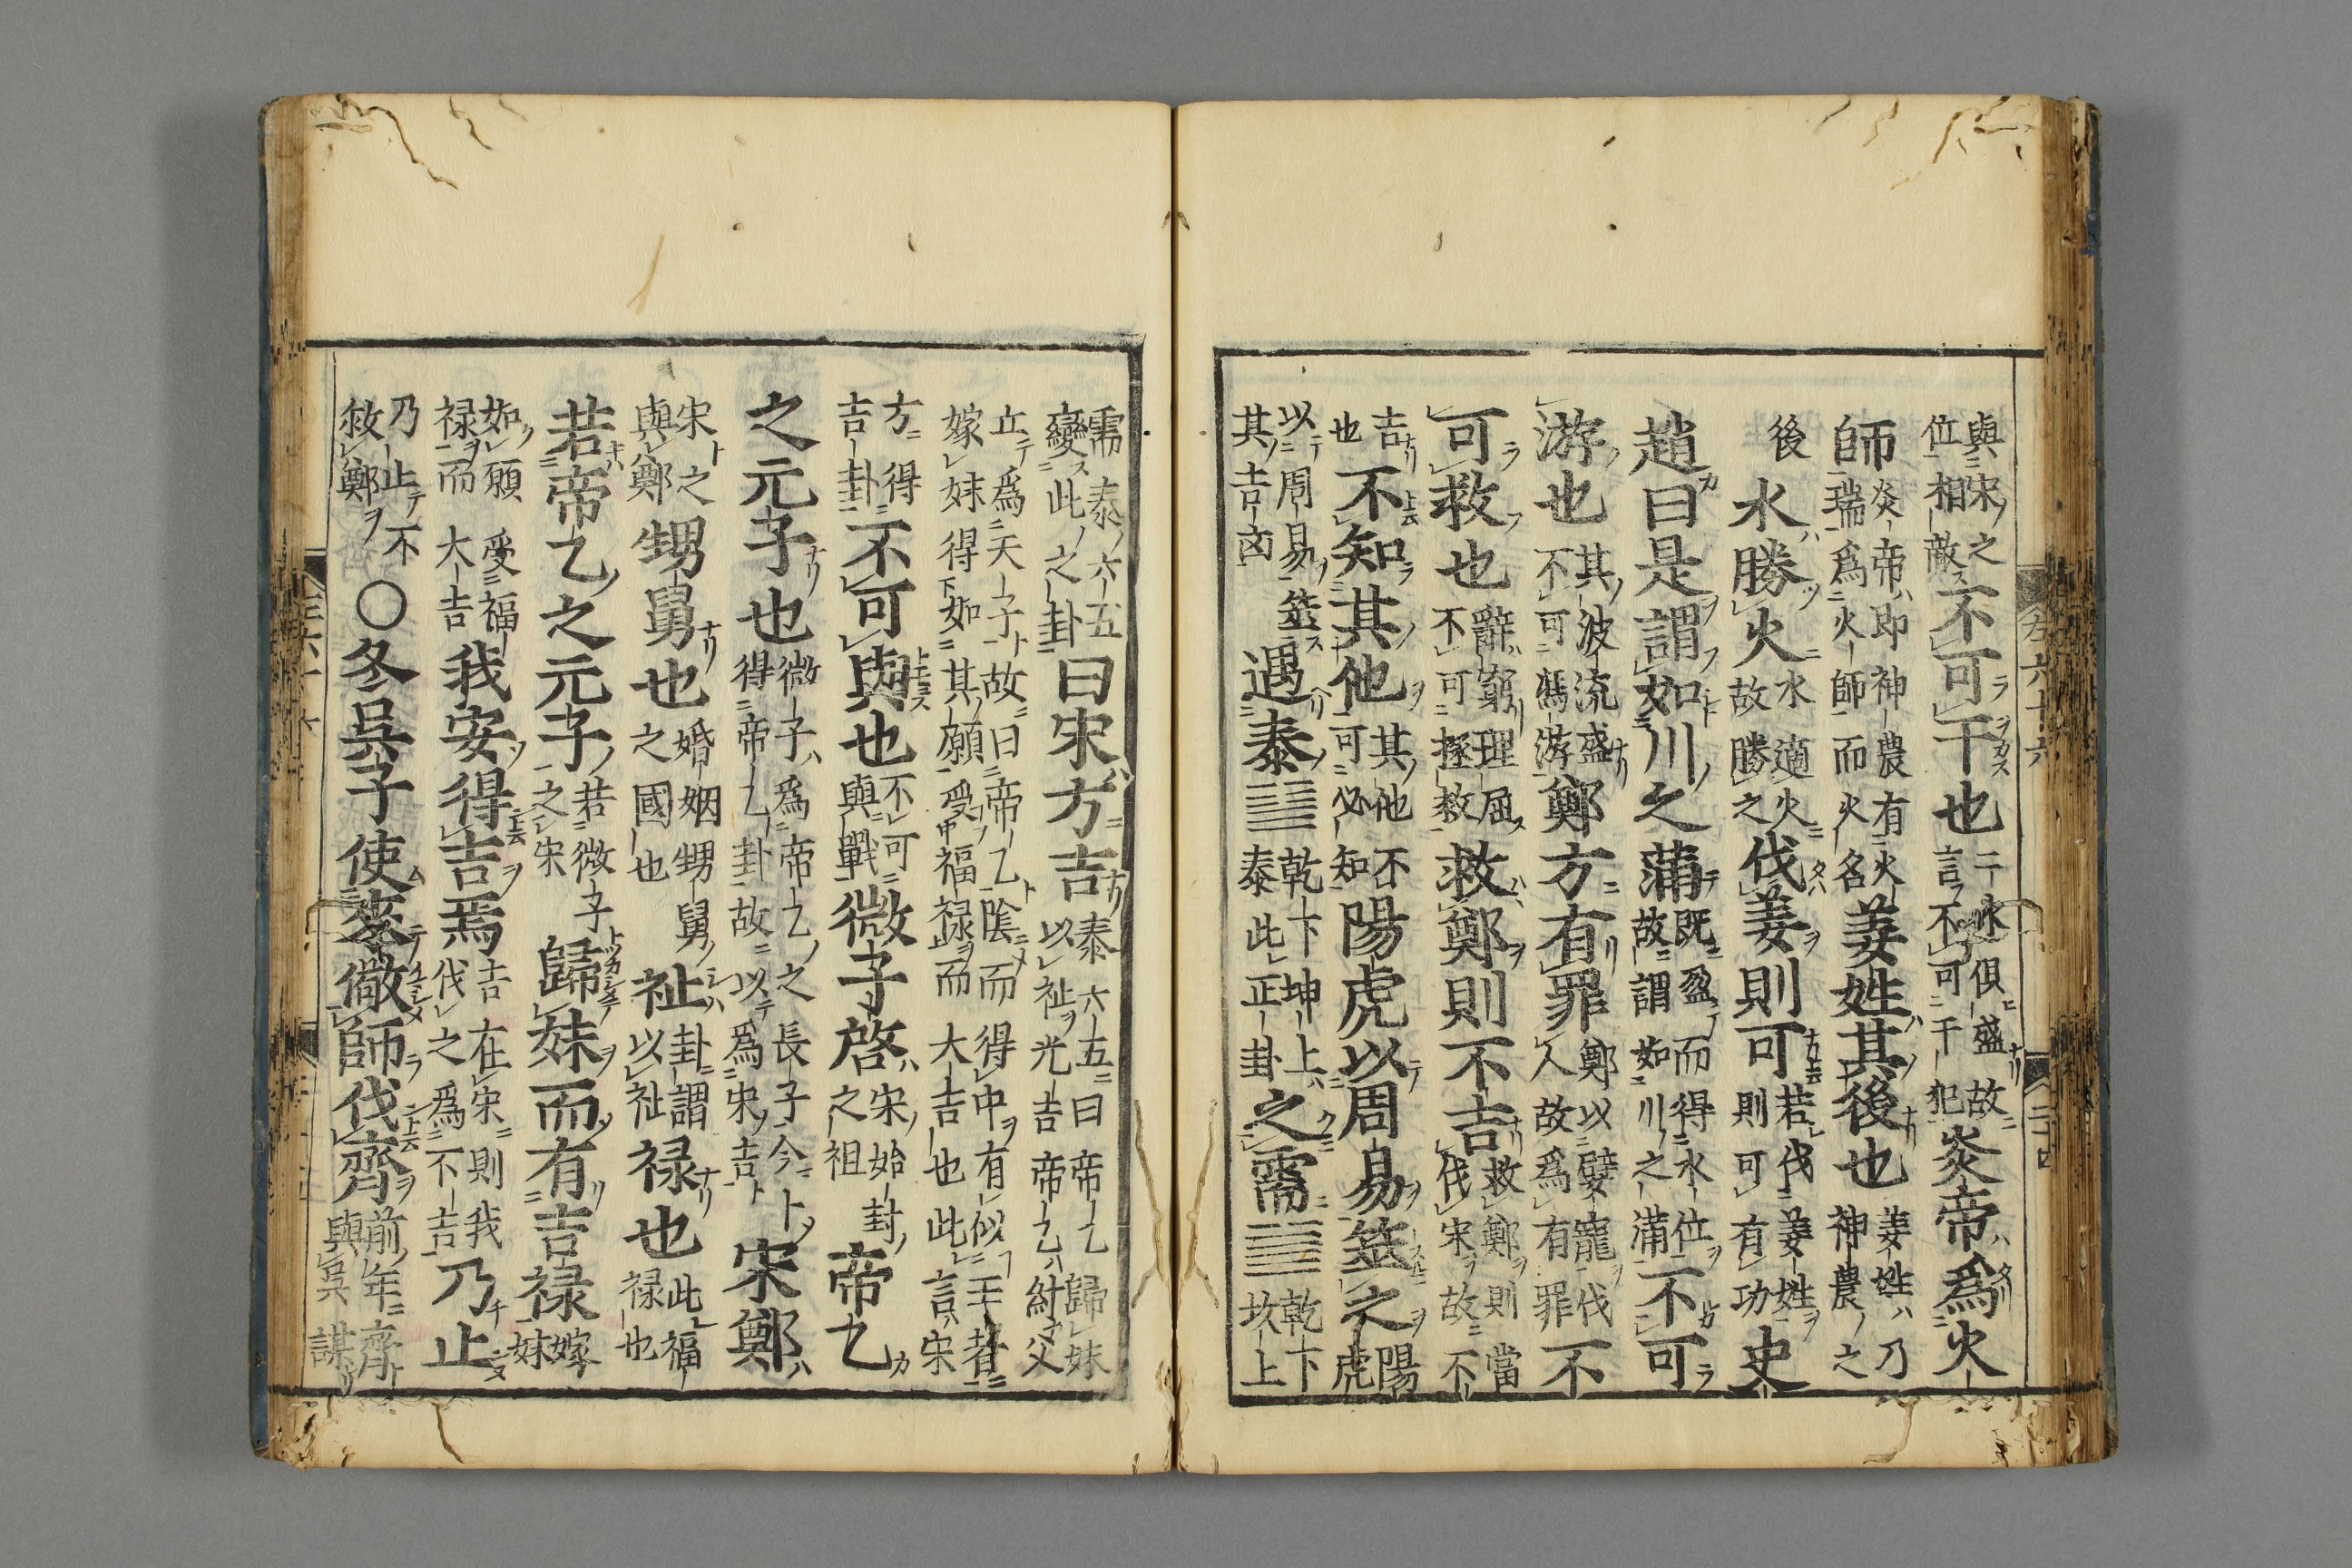 與宋之位相敵不可干也二水俱盛故言不可干犯炎帝爲火
師炎帝即神農有火瑞爲火師而火名姜姓其後也姜姓乃神農之
後水勝火水適火故勝之伐姜則可若伐姜姓則可有功史
趙曰是謂如川之蒲既盈而得水位故謂如川之滿不可
游也其波流盛不可馮游鄭方有罪鄭以嬖寵伐人故爲有罪不
可救也辭窮理屈不可拯救救鄭則不吉救鄭則當伐宋故不
吉也不知其他其他不可必知陽虎以周易筮之陽虎
以周易筮其吉凶遇泰䷊乾下坤上泰此正卦之需䷄乾下坎上
卷六十六
二十四
需泰六五變此之卦曰宋方吉泰六五曰帝乙歸妹以祉光吉帝乙紂父
立爲天子故曰帝乙陰而得中有似王者嫁妹得如其願受福祿而大吉也此言宋
方得吉卦不可與也不可與戰微子啓宋始封之祖帝乙
之元子也微子爲帝乙之長子今卜得帝乙卦故以爲宋吉宋鄭
宋之與鄭甥舅也婚姻甥舅之國也祉卦謂以祉祿也此福祿也
若帝乙之元子若微子之宋歸妹而有吉祿嫁妹
如願受福祿而大吉我安得吉焉吉在宋則我伐之爲不吉乃止
乃止不救鄭〇冬吳子使來儆師伐齊前年齊與吳謀